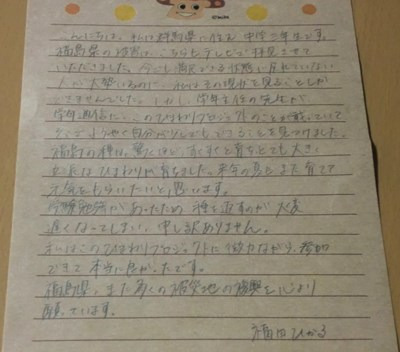 こんにちは。私は群馬県に住む中学三年生です。
福島県の
こちらもテレビで拝見させて
いただきました。今でも
できる状態に戻れていない
人が大勢いるのに、私はその現状を見ることしか
できませんでした。しかし、学年主任の先生が
学年通信に、このひまわりプロジェクトのことが載っていて
ようやく自分が少しでもできることを見つけました。
福島の種は、驚くほどすくすくと育ち、とても大きい
ひまわりが育ちました。来年の夏もまた育てて
元気をもらいたいと思います。
受験勉強があったため種を返すのが大変
遅くなってしまい、申し訳ありません。
私はこのひまわりプロジェクトに微力ながら参加
できて本当に良かったです。
福島県、また多くの被災地の復興を心より
願っています。
福田ひかる